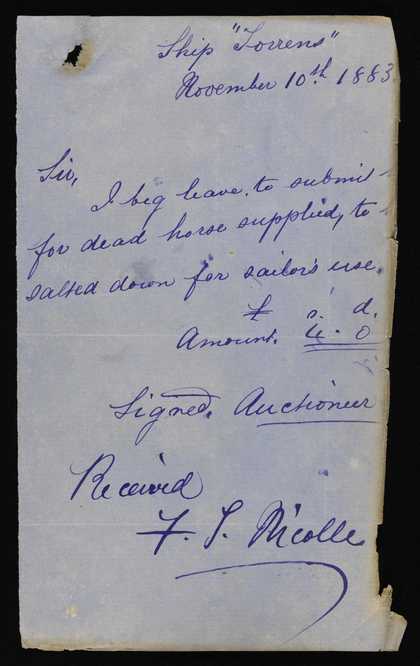 Ship "Torrens"
November 10th 1883
Sir,
I beg leave to submit
for dead horse supplied, to
salted down for sailor's use.
£ s. d.
Amount. 4. 0
Signed. Auctioneer
Received
F. S. Nicolle